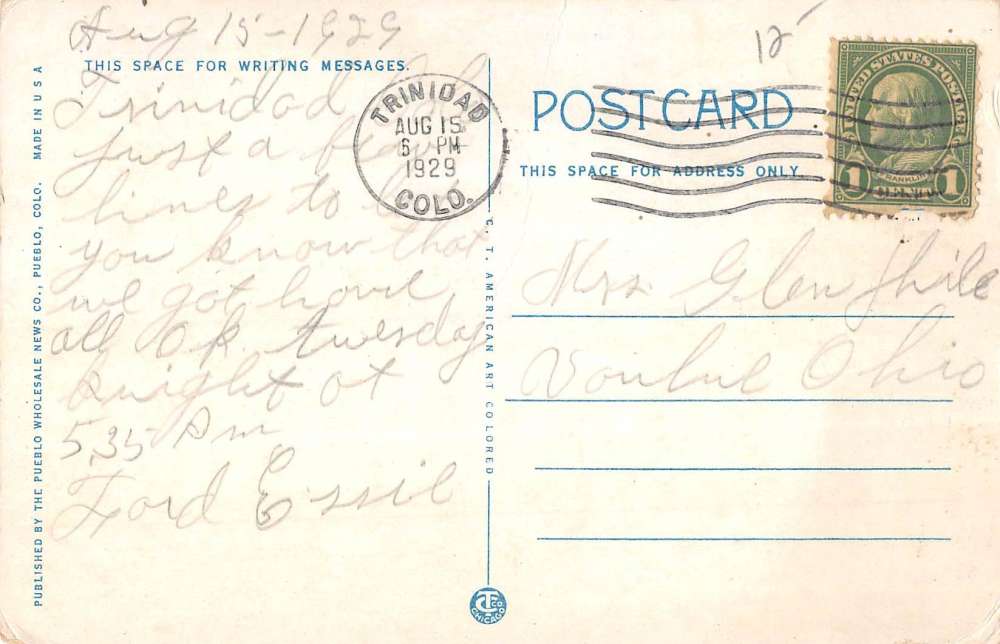 Aug 15-1929
THIS SPACE FOR WRITING MESSAGES.
Trinidad
just a few
lines to
you know that
we got home
all ok tuesday
knight at
5,35 Pm
Ford Essie
TRINIDAD
AUG 15
6 PM
1929
COLO.
12
POST CARD
THIS SPACE FOR ADDRESS ONLY.
UNITED STATES POSTAGE
FRANKLIN
1 CENT 1
Mrs Glen
Ohio
MADE IN U S A
PUBLISHED BY THE PUEBLO WHOLESALE NEWS CO., PUEBLO, COLO.
C. T. AMERICAN ART COLORED
CT CO
CHICAGO